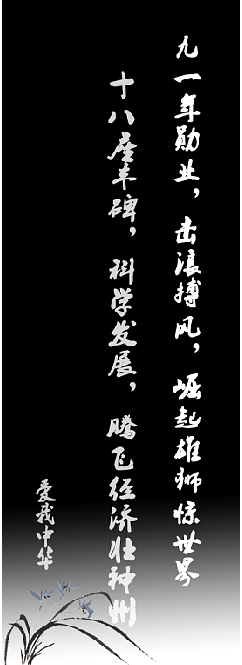 九一年勋业，击浪搏风，崛起雄狮惊世界
十八座丰碑，科学发展，腾飞经济壮神州
爱我中华